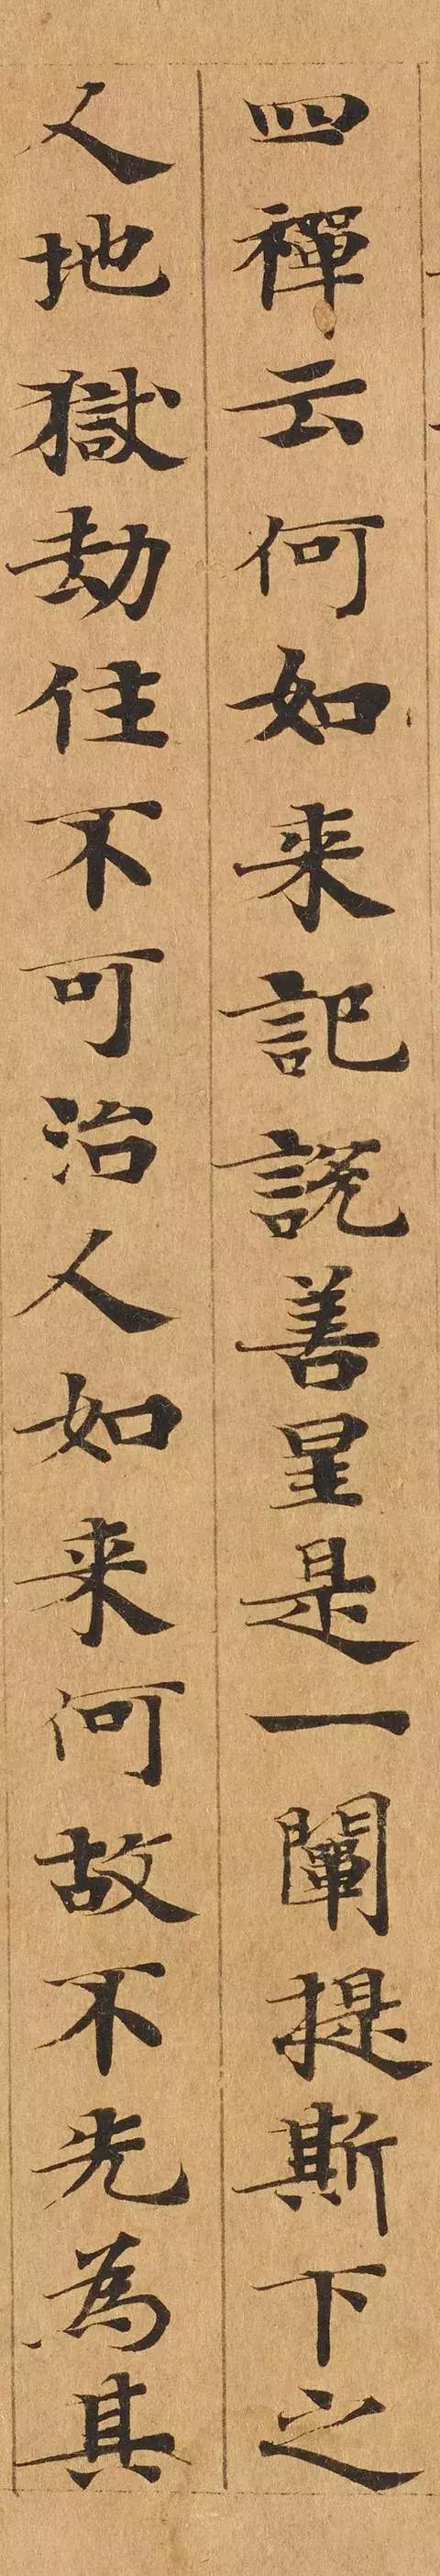 四禪云何如来記說善星是一闡提斯下之
人地獄劫住不可治人如来何故不先為其